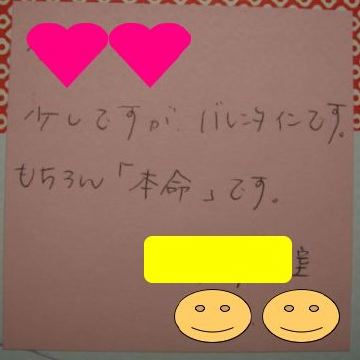 少しですが バレンタインです。
もちろん「本命」です。